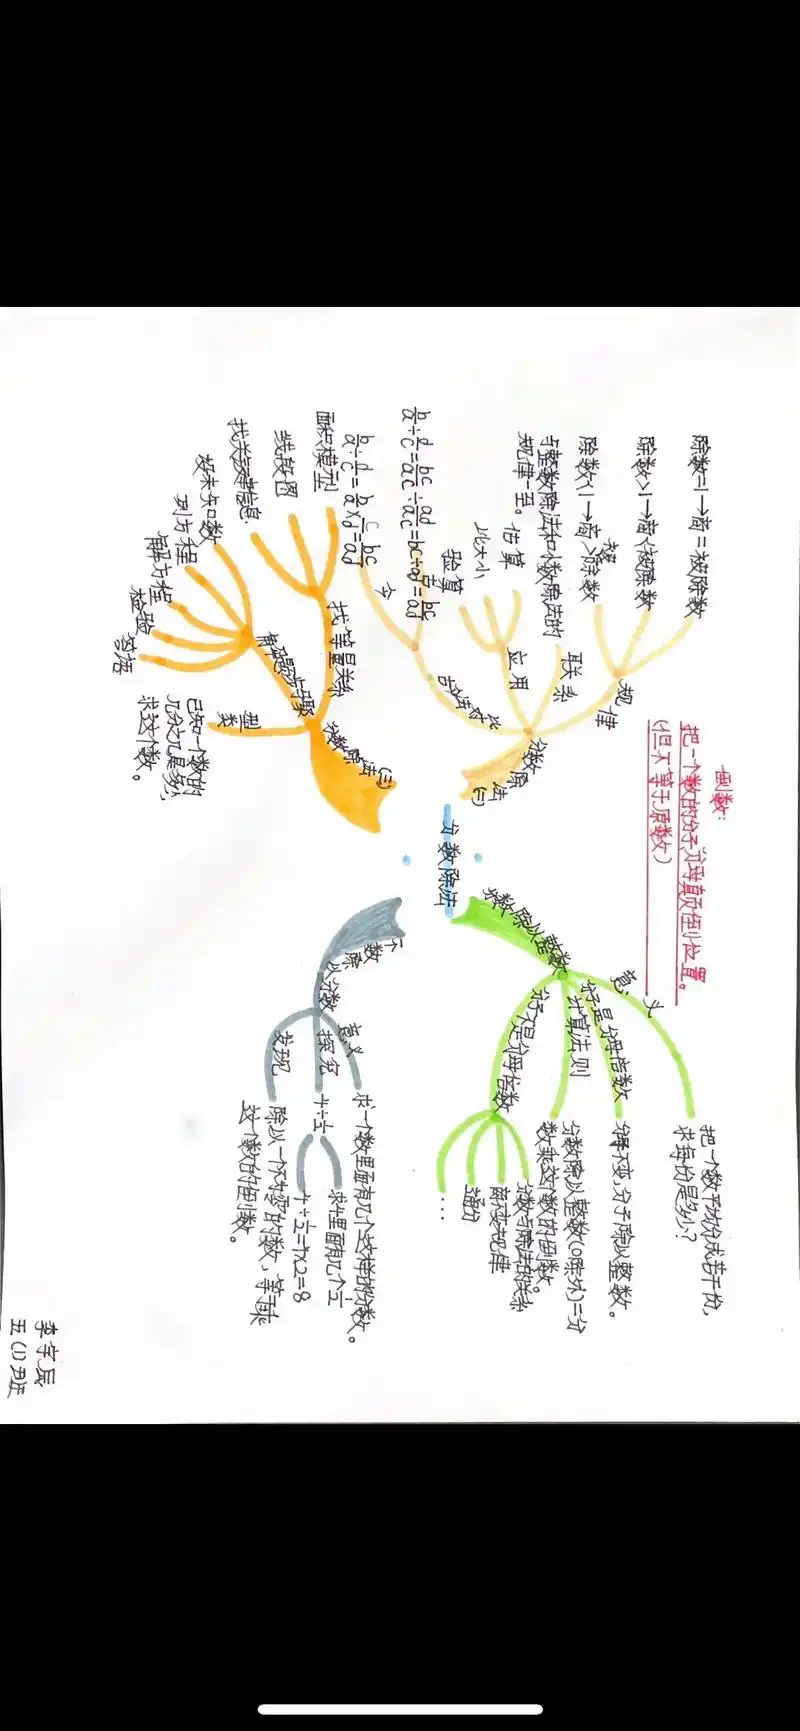 倒数:
把一个数的分子、分母颠倒位置。
(但不等于原数)
分数除法
分数除以整数
意义
把一个数平均分成若干份,
求每份是多少?
分子是分母倍数
分母不变,分子除以整数。
计算法则
分数除以整数(0除外)=分
数乘这个数的倒数。
分子不是分母倍数
分数与除法的关系
商不变规律
通分
...
一个数除以分数
意义
求一个数里面有几个这样的分数。
探究
4÷1/2
求4里面有几个1/2
4÷1/2=4×2=8
发现
除以一个不为零的数,等于乘
这个数的倒数。
分数除法(二)
规律
除数=1→商=被除数
除数>1→商<被除数
除数<1→商>被除数
联系
与整数除法和小数除法的
规律一至。
应用
估算
比大小
验算
b/a÷d/c=bc/ac÷ad/ac=bc÷ad=bc/ad
b/a÷d/c=b/a×c/d=bc/ad
分数除法(三)
找等量关系
面积模型
线段图
找关键信息
解题步骤
设未知数
列方程
解方程
检验
答语
类型
已知一个数的
几分之几是多少,
求这个数。
李宇辰
五(1)班